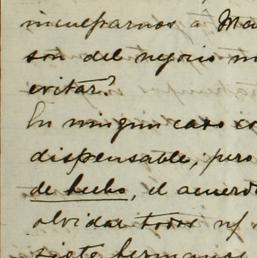 inculparnos á Ma
son del negocio m
evitar?
En ningun caso co
dispensable; pero
de hecho, el acuerdo
olvidar todos n/
siete hermanos